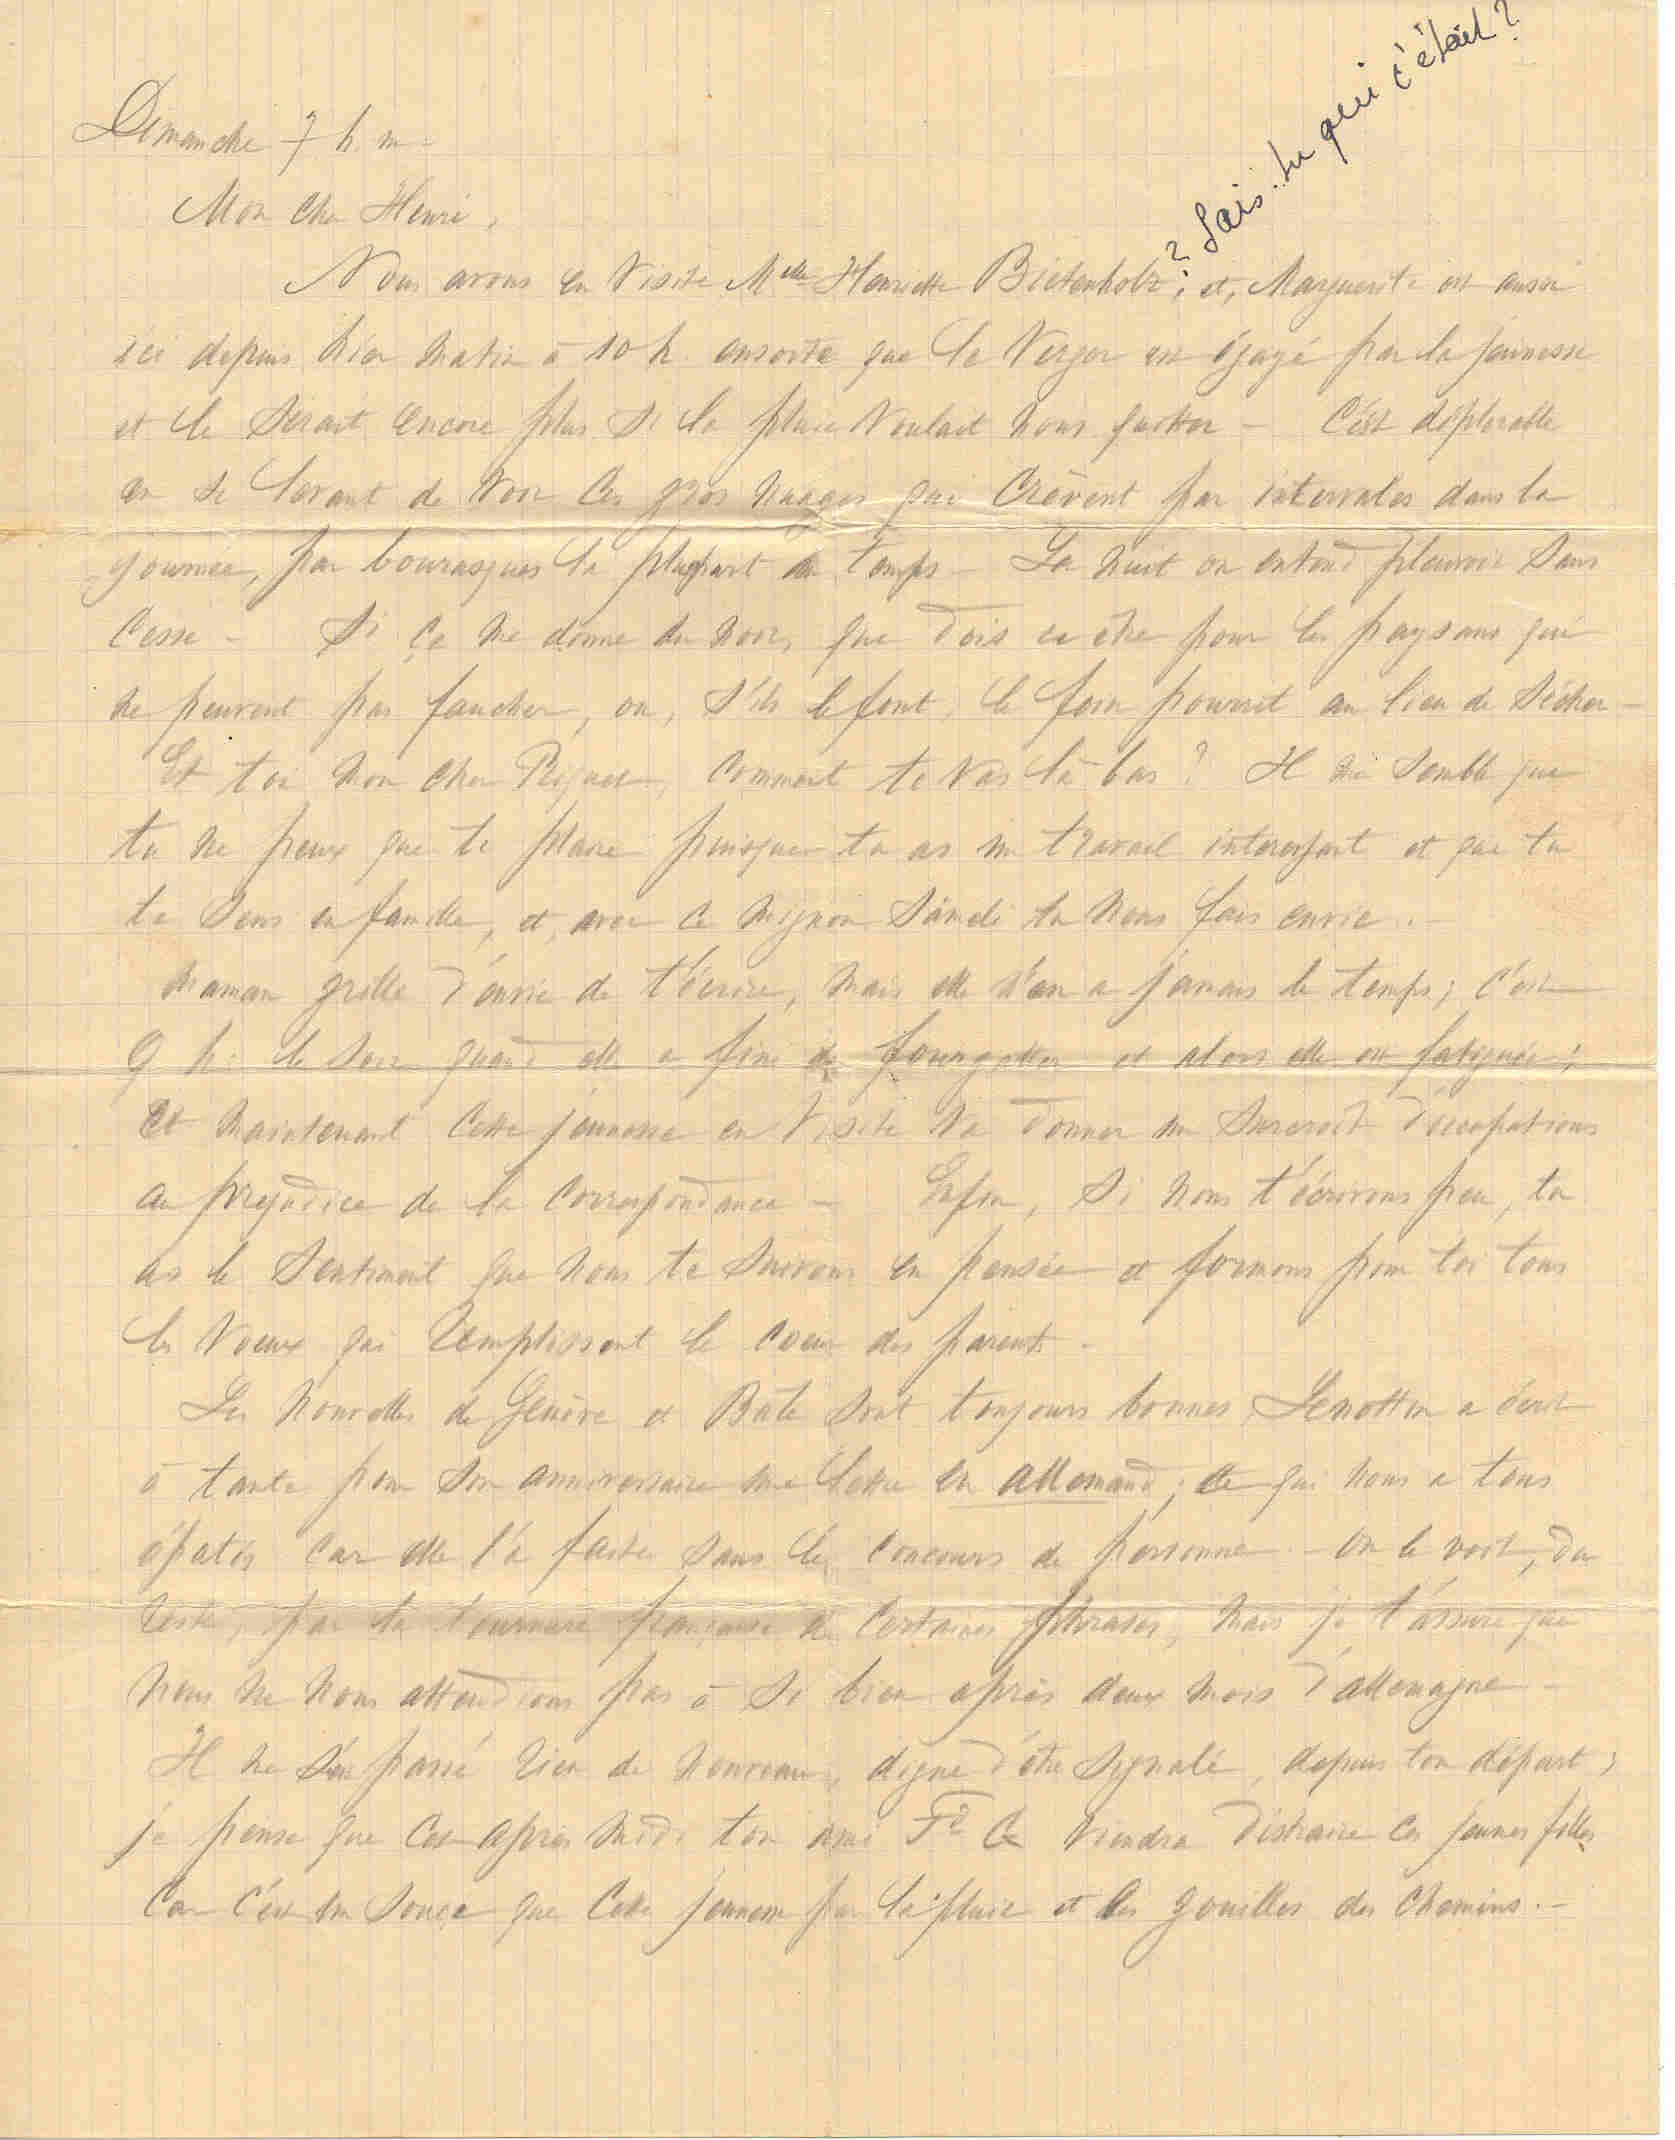 ? Sais-tu qui c'était ?
Dimanche 7 h. m.
Mon cher Henri,
Nous avons en visite Mlle Henriette Bietenholz, et, Marguerite est aussi
ici depuis hier matin à 10 h. ensorte que le Verger est égayé par la jeunesse
et le serait encore plus si la pluie voulait nous quitter — C'est déplorable
en se levant de voir ces gros nuages qui crèvent par intervales dans la
journée, par bourasques la plupart du temps — La nuit on entend pleuvoir sans
cesse — Si ça me donne du noir, que dois ce être pour les paysans qui
ne peuvent pas faucher, ou, s'ils le font, le foin pourrit au lieu de sécher —
Et toi mon cher, comment te vas là-bas ? Il me semble que
tu ne peux que te plaire puisque tu as un travail intéressant et que tu
te sens en famille, et, avec ce mignon Sandi tu nous fais envie. —
Maman grille d'envie de t'écrire, mais elle n'en a jamais le temps ; c'est
9 h. le soir quand elle a fini de fourgotter et alors elle est fatiguée ;
et maintenant cette jeunesse en visite va donner un surcroît d'occupations
au préjudice de la correspondance — Enfin, si nous t'écrivons peu, tu
as le sentiment que nous te suivons en pensée et formons pour toi tous
les voeux qui remplissent le coeur des parents.
Les nouvelles de Genève et Bâle sont toujours bonnes, a écrit
à tante pour son anniversaire une lettre en allemand, ce qui nous a tous
épatés car elle l'a faite sans le concours de personne. — On le voit, du
reste, par la tournure française de certaines phrases, mais je t'assure que
nous ne nous attendions pas à si bien après deux mois d'allemagne —
Il ne s'est passé rien de nouveau, digne d'être signalé, depuis ton départ ;
je pense que cet après midi ton ami Fd viendra distraire ces jeunes filles
car c'est un souci que cette jeunesse par la pluie et les gouilles des chemins. —